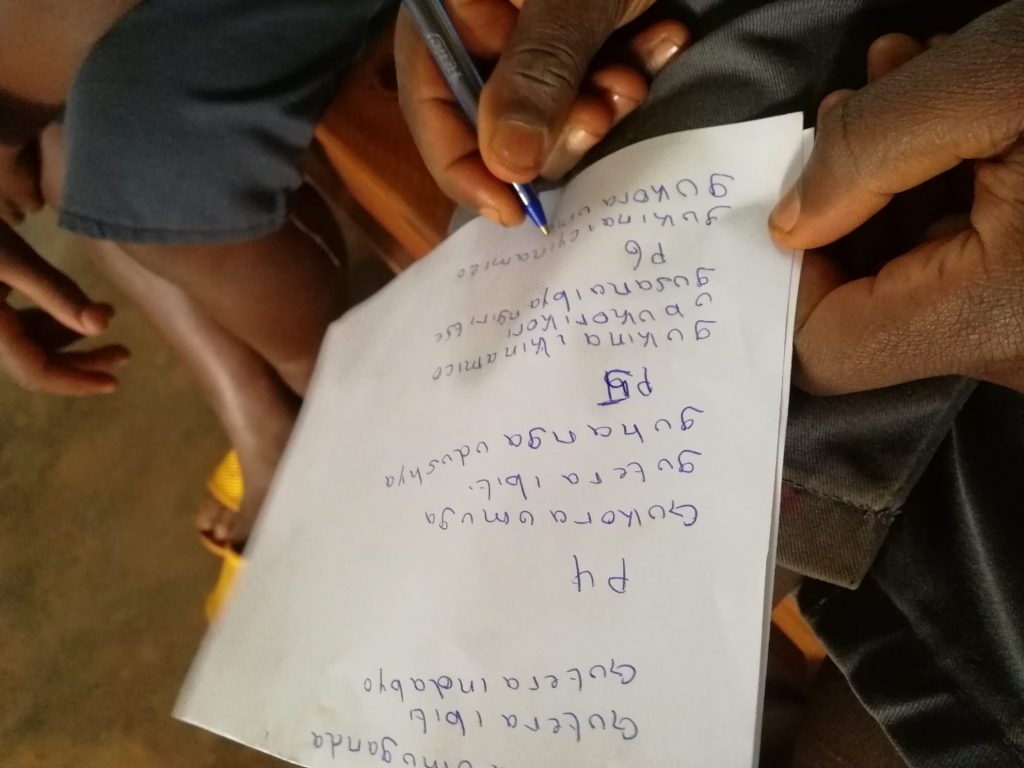 umuganda
Gutera ibiti
Gutera indabyo
P4
Gukora umuga
gutera ibiti
guhanga udushya
P5
gukina ikinamico
ubukorikori
gusana ibyangiritse
P6
gukina icyinamico
gukora um